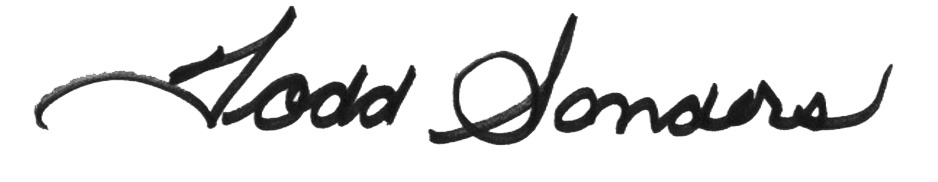 Todd Sanders